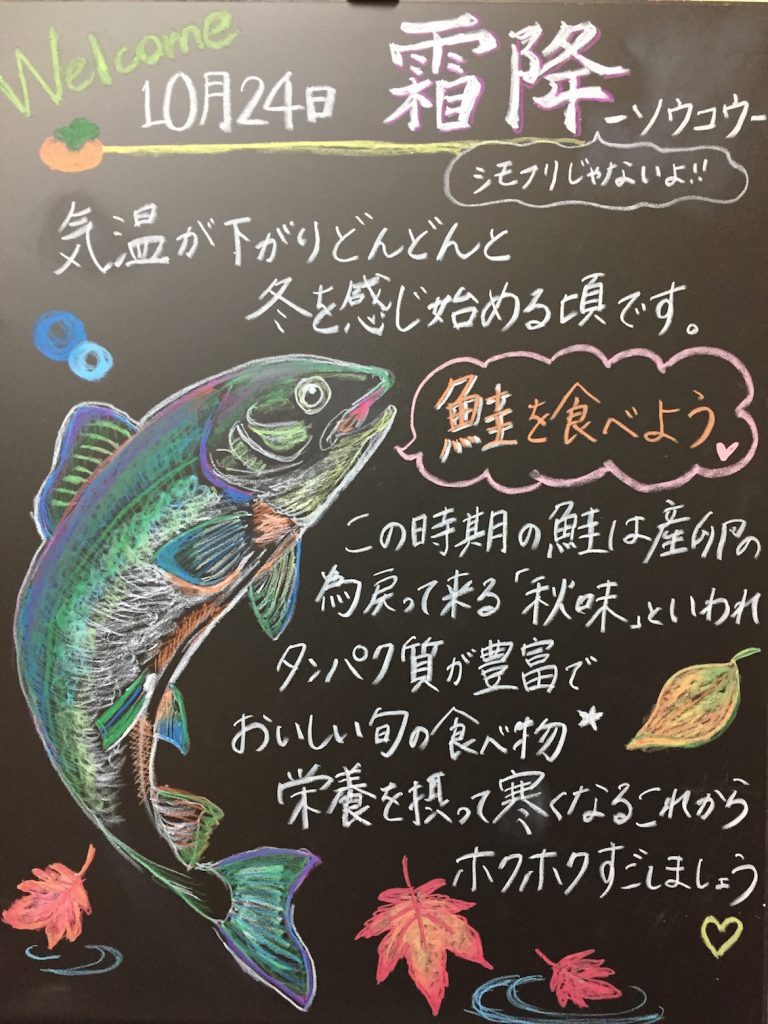 Welcome
10月24日 霜降
ーソウコウー
シモフリじゃないよ!!
気温が下がりどんどんと
冬を感じ始める頃です。
鮭を食べよう
この時期の鮭は産卵の
為戻って来る「秋味」といわれ
タンパク質が豊富で
おいしい旬の食べ物
栄養を摂って寒くなるこれから
ホクホクすごしましょう